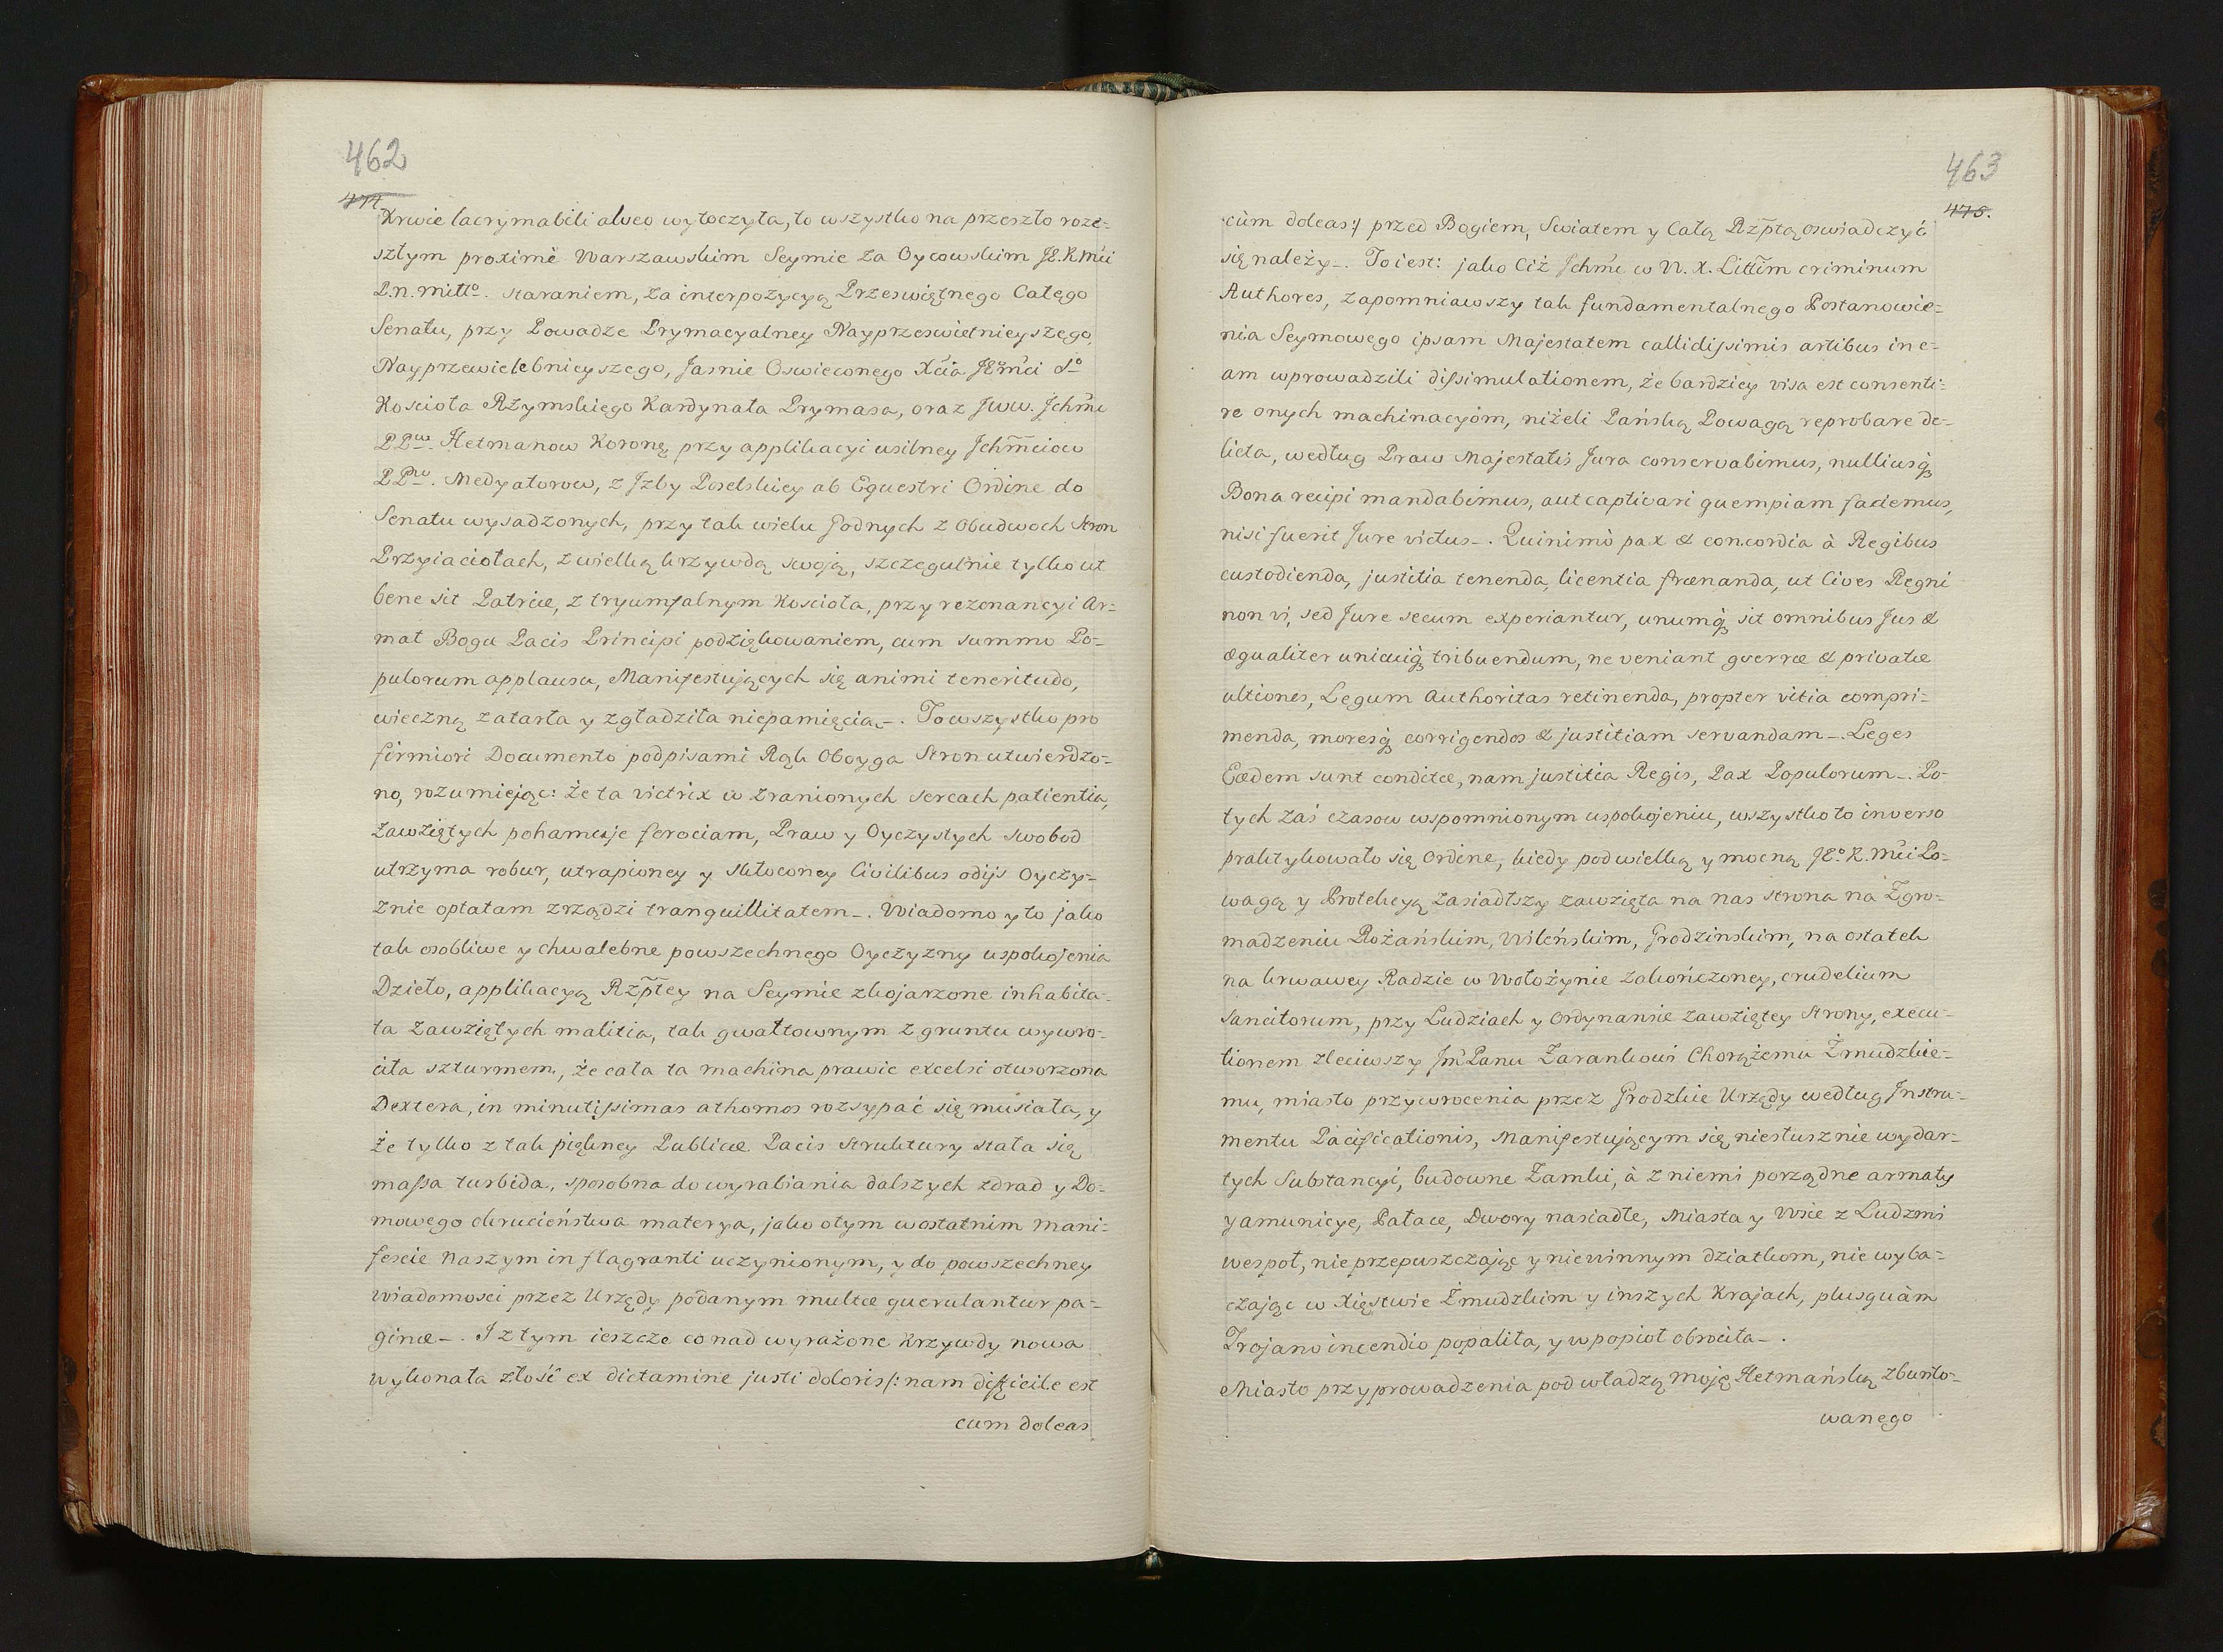 462
474
Krwie lacrymabili alveo wytoczyła, to wszystko na przeszło roze-
szłym proximè Warszawskim Seymie za Oycowskim JE. K. Mći
P. n. Miłłº. staraniem, za interpozycyą Przeswiętnego Całego
Senatu, przy Powadze Prymacyalney Nayprzeswietnieyszego,
Nayprzewielebnieyszego, Jasnie Oswieconego Xćia JEºmći Sº
Koscioła Rzymskiego Kardynała Prymasa, oraz Jww. Jchmć
PPow. Hetmanow Koronę, przy applikacyi usilney Jchmćiow
PPow. Medyatorow, z Jzby Poselskiey ab Equestri Ordine do
Senatu wysadzonych, przy tak wielu godnych z Obudwoch Stron
Przyiaciołach, z wielką krzywdą swoją, szczegulnie tylko ut
bene sit Patriæ, z tryumfalnym Kosciola, przy rezonancyi Ar-
mat Bogu Pacis Principi podziękowaniem, cum summo Po-
pulorum applausu, Manifestujących się animi teneritudo,
wieczną zatarła y zgładziła niepamięcią -. To wszystko pro
firmiori Documento podpisami Rąk Oboyga Stron utwierdzo-
no, rozumiejąc: że ta victrix w zranionych sercach patientia,
zawziętych pohamuje ferociam, Praw y Oyczystych swobod
utrzyma robur, utrapioney y skłoconey Civilibus odijs Oyczy-
znie optatam zrządzi tranquillitatem -. Wiadomo y to jako
tak osobliwe y chwalebne powszechnego Oyczyzny uspokojenia
Dzieło, applikacyą Rzptey na Seymie skojarzone inhabita-
ta zawziętych malitia, tak gwałtownym z gruntu wywro-
ciła szturmem, że cała ta machina prawie excelsi otworzona
Dextera, in minutissimas athomos rozsypać się musiała, y
że tylko z tak piękney Publicæ Pacis Struktury stała się
massa turbida, sposobna do wyrabiania dalszych zdrad y Do-
mowego okrucieństwa materya, jako o tym w ostatnim Mani-
fescie Naszym in flagranti uczynionym, y do powszechney
wiadomosci przez Urzędy podanym multæ querulantur pa-
ginæ -. I z tym ieszcze co nad wyrażone Krzywdy nowa
wykonała złość ex dictamine justi doloris /: nam difficile est
cum doleas
463
475.
cùm doleas :/ przed Bogiem, Swiatem y Całą Rzptą oswiadczyć
się należy -. To iest: jako Ciż Jchmć w W. X. Littím criminum
Authores, zapomniawszy tak fundamentalnego Postanowie-
nia Seymowego ipsam Majestatem callidissimis artibus in e-
am wprowadzili dissimulationem, że bardziey visa est consenti-
re onych machinacyóm, niżeli Pańską Powagą reprobare de-
licta, według Praw Majestatis Jura conservabimus, nulliusq̨
Bona recipi mandabimus, aut captivari quempiam faciemus,
nisi fuerit Jure victus -. Quinimò pax & concordia à Regibus
custodienda, justitia tenenda, licentia frænanda, ut Cives Regni
non vi, sed Jure secum experiantur, unumq̨ sit omnibus Jus &
æqualiter unicuiq̨ tribuendum, ne veniant gverræ & privatæ
ultiones, Legum Authoritas retinenda, propter vitia compri-
menda, moresq̨ corrigendos & justitiam servandam -. Leges
Eædem sunt conditæ, nam justitia Regis, Pax Populorum -. Po
tych zaś czasow wspomnionym uspokojeniu, wszystko to inverso
praktykowało się Ordine, kiedy pod wielką y mocną JEº. K. Mći Po-
wagą y Protekcyą zasiadłszy zawzięta na nas strona na Zgro-
madzeniu Rożańskim, Wileńskim, Grodzinskim, na ostatek
na krwawey Radzie w Wołożynie zakończoney, crudelium
Sancitorum, przy Ludziach y Ordynansie zawziętey Strony, execu-
tionem zleciwszy Jm̃ Panu Zarankowi Chorążemu Żmudzkie-
mu, miasto przywrocenia przez Grodzkie Urzędy według Instru-
mentu Pacificationis, Manifestującym się niesłusznie wydar-
tych Substancyi, budowne Zamki, à z niemi porządne armaty
y amunicye, Pałace, Dwory nasiadłe, Miasta y Wsie z Ludzmi
wespoł, nie przepuszczając y niewinnym dziatkom, nie wyba-
czając w Xięstwie Żmudzkim y inszych Krajach, plusquàm
Trojano incendio popaliła, y w popioł obrociła -.
Miasto przyprowadzenia pod władzą moję Hetmańską zbunto-
wanego